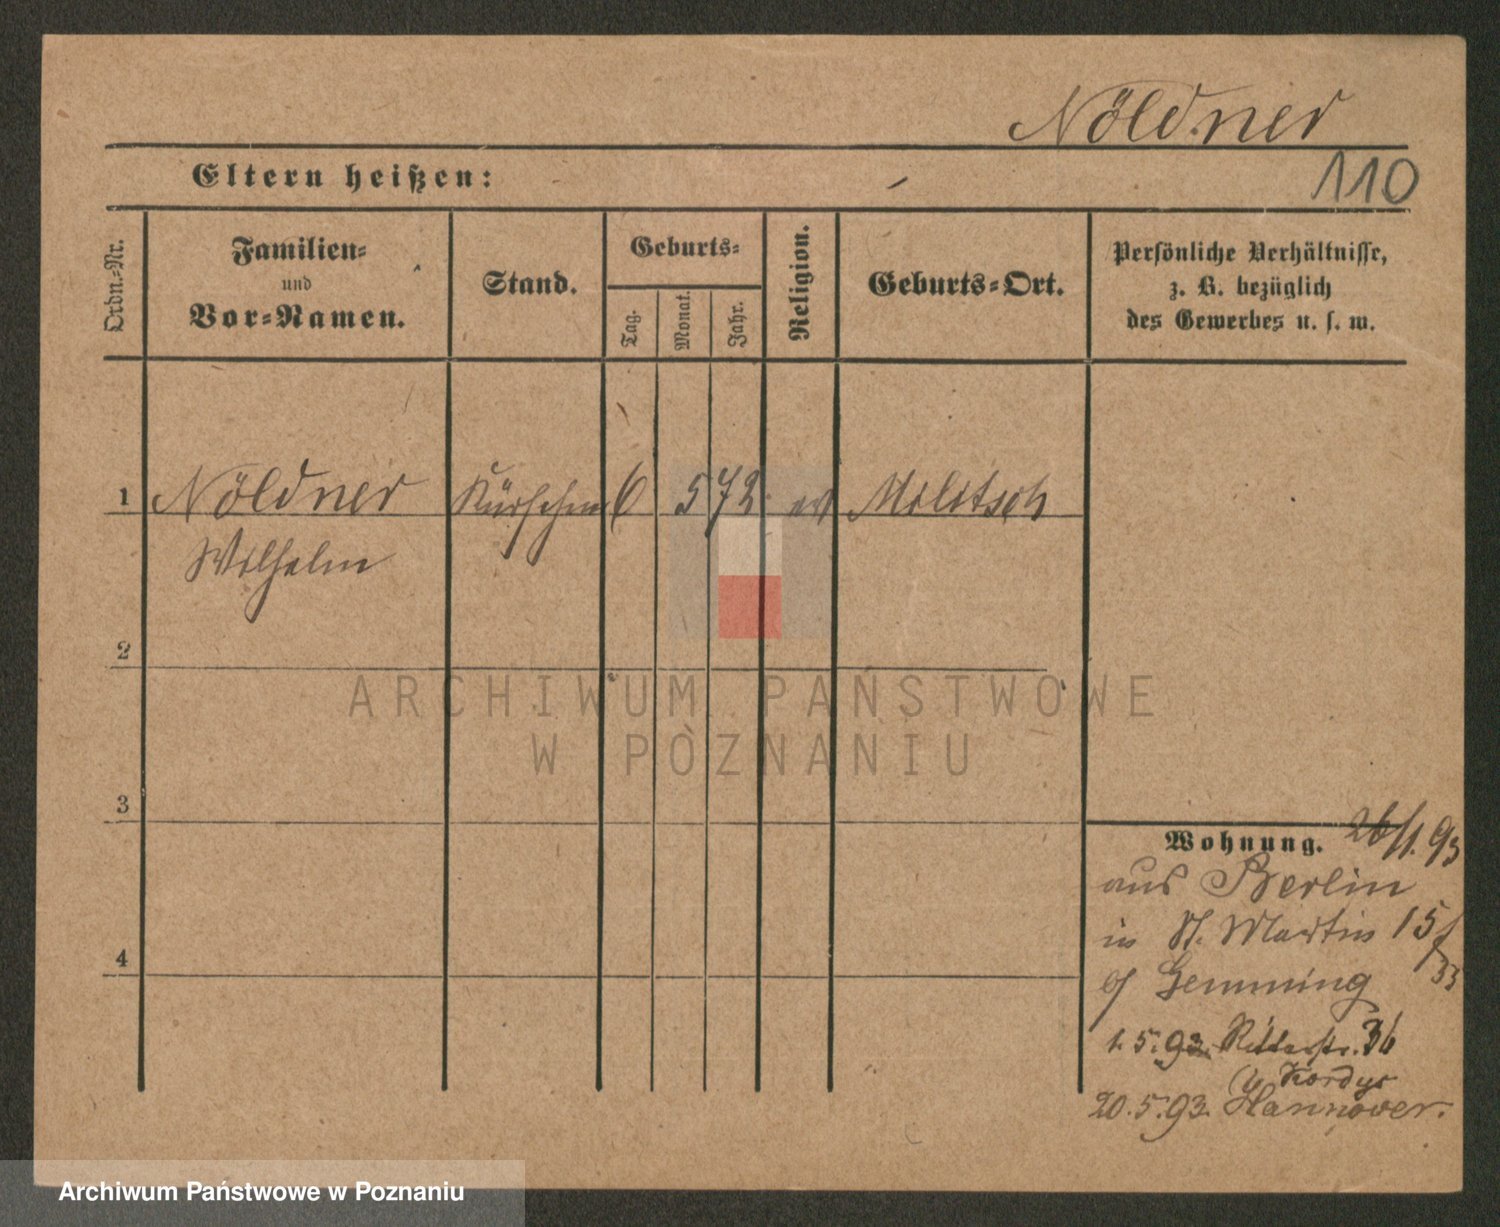 Nöldner
110
Eltern heißen:
Ordn.-Nr.
Familien-
und
Vor-Namen.
Stand.
Geburts-
Tag.
Monat.
Jahr.
Religion.
Geburts-Ort.
Persönliche Verhältnisse,
z. B. bezüglich
des Gewerbes u. s. w.
1 Nöldner Kürschner 6 5 72 ev Militsch
Wilhelm
2
3
4
Wohnung. 26/1. 93
aus Berlin
in St. Martin 15/33
b/ Gemming
1. 5. 93. Ritterstr. 36
b/ Kordys
20. 5. 93. Hannover.
ARCHIWUM PAŃSTWOWE
W POZNANIU
Archiwum Państwowe w Poznaniu